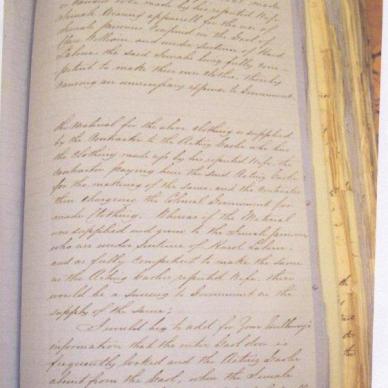 made by his reputed Wife
Female Wearing apparell for the use of
female prisoners confined in the Goal of
William and under Sentence of Hard
Labour the said Females being fully com-
petent to make their own clothes, thereby
causing an unnecessary expense to Government.
the Material for the above clothing is supplied
by the Contractor to the Acting Gaoler who has
the Clothing made up by his reputed Wife, the
Contractor paying him the said Acting Gaoler
for the making of the same, and the Contractor
then charging the Colonial Government for
made Clothing. Whereas if the Material
was supplied and given to the Female prisoners
who are under Sentence of Hard Labour
and as fully competent to make the same
as the Acting Gaolers reputed Wife, there
would be a Saving to Government in the
supply of the same;
I would beg to add for Your
information that the outer Gaol door is
frequently locked and the Acting Gaoler
absent from the Goal, when the Female